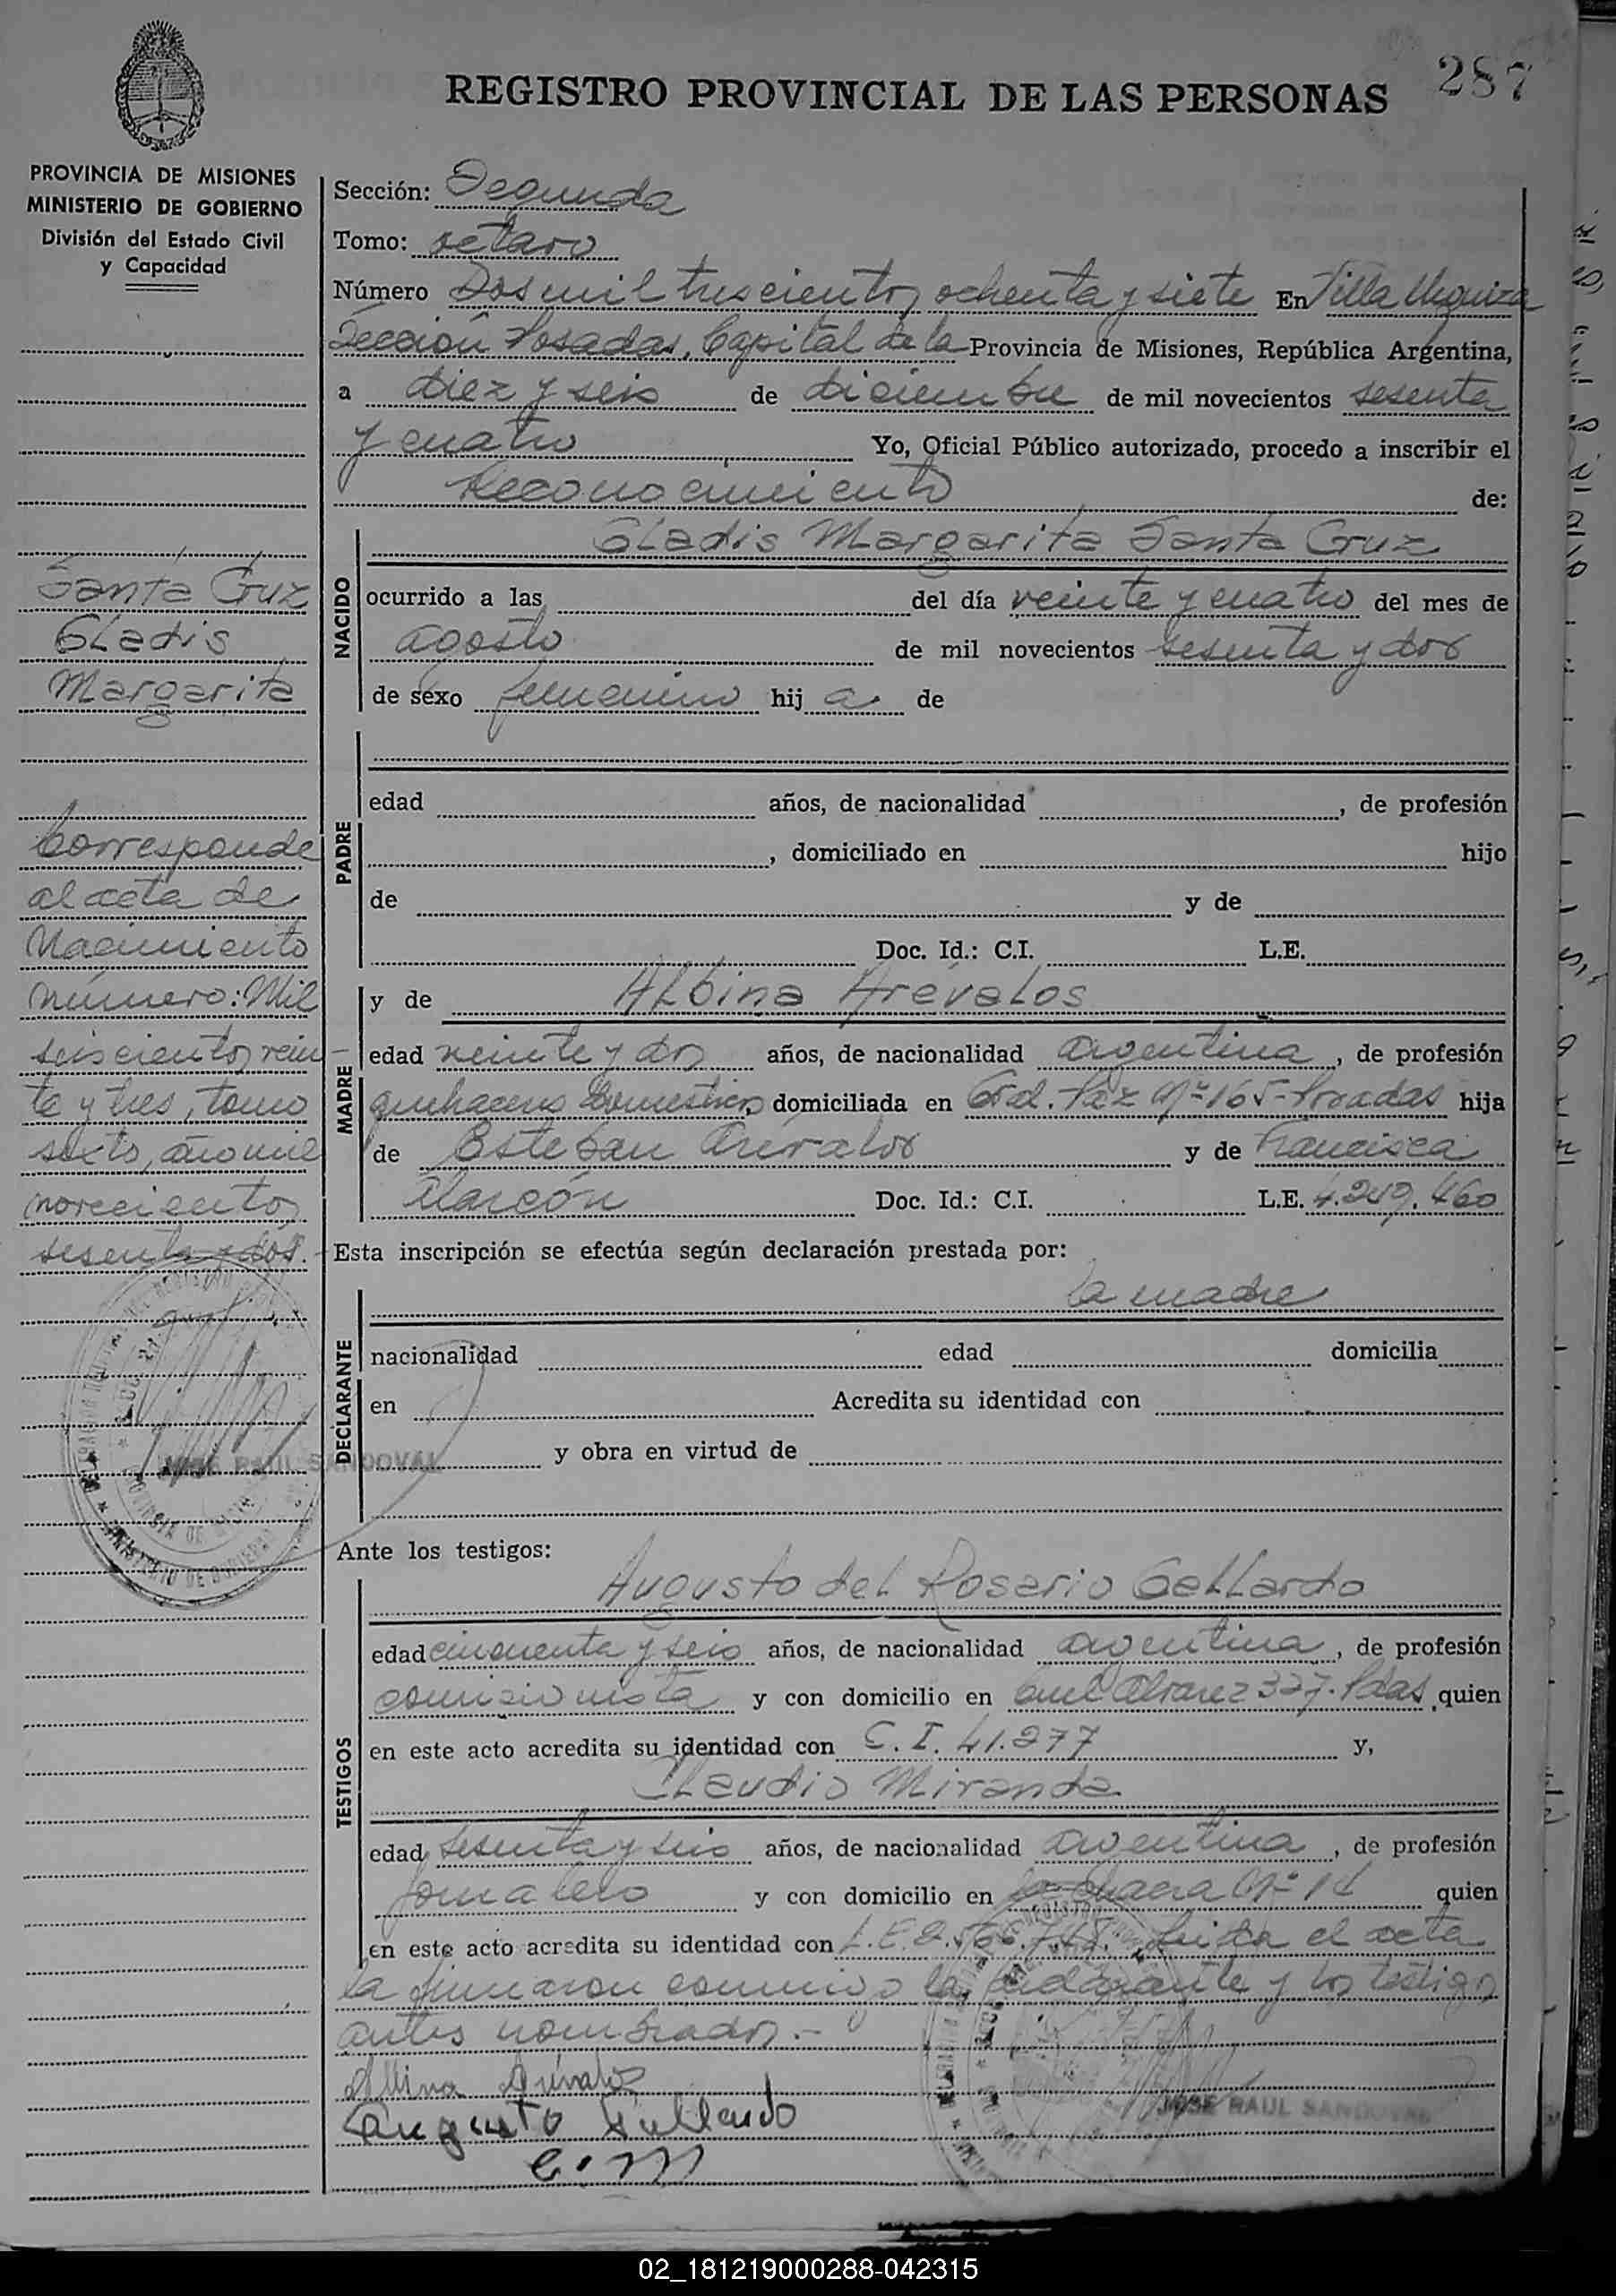 287
REGISTRO PROVINCIAL DE LAS PERSONAS
PROVINCIA DE MISIONES
MINISTERIO DE GOBIERNO
División del Estado Civil
y Capacidad
Sección: Segunda
Tomo: octavo
Número Dos mil trescientos ochenta y siete En Villa Urquiza
Sección Posadas, Capital de la Provincia de Misiones, República Argentina,
a diez y seis de diciembre de mil novecientos sesenta
y cuatro Yo, Oficial Público autorizado, procedo a inscribir el
Reconocimiento de:
Santa Cruz
Gladis
Margarita
Corresponde
al acta de
Nacimiento
número: Mil
seiscientos vein-
te y tres, tomo
sexto, año mil
novecientos
sesenta y dos.
JOSE RAUL SANDOVAL
NACIDO
Gladis Margarita Santa Cruz
ocurrido a las del día veinte y cuatro del mes de
agosto de mil novecientos sesenta y dos
de sexo femenino hij a. de
PADRE
edad años, de nacionalidad , de profesión
, domiciliado en hijo
de y de
Doc. Id.: C.I. L.E.
MADRE
y de Albina Arévalos
edad veinte y dos años, de nacionalidad argentina, de profesión
quehaceres domésticos domiciliada en Gral. Paz Nº 165-Posadas hija
de Esteban Arévalos y de Francisca
Alarcón Doc. Id.: C.I. L.E. 4.249.460
Esta inscripción se efectúa según declaración prestada por:
DECLARANTE
la madre
nacionalidad edad domicilia
en Acredita su identidad con
y obra en virtud de
Ante los testigos:
TESTIGOS
Augusto del Rosario Gallardo
edad cincuenta y seis años, de nacionalidad argentina, de profesión
comisionista y con domicilio en Alvarez 327-Pdas, quien
en este acto acredita su identidad con C. I. 41.277 y,
Claudio Miranda
edad sesenta y seis años, de nacionalidad argentina, de profesión
jornalero y con domicilio en Chacra Nº quien
en este acto acredita su identidad con L.E. el acta
la firmaron conmigo la y los testigos
antes nombrados.-
Albina Arévalos
Augusto Gallardo
C. M
JOSE RAUL SANDOVAL
02_181219000288-042315